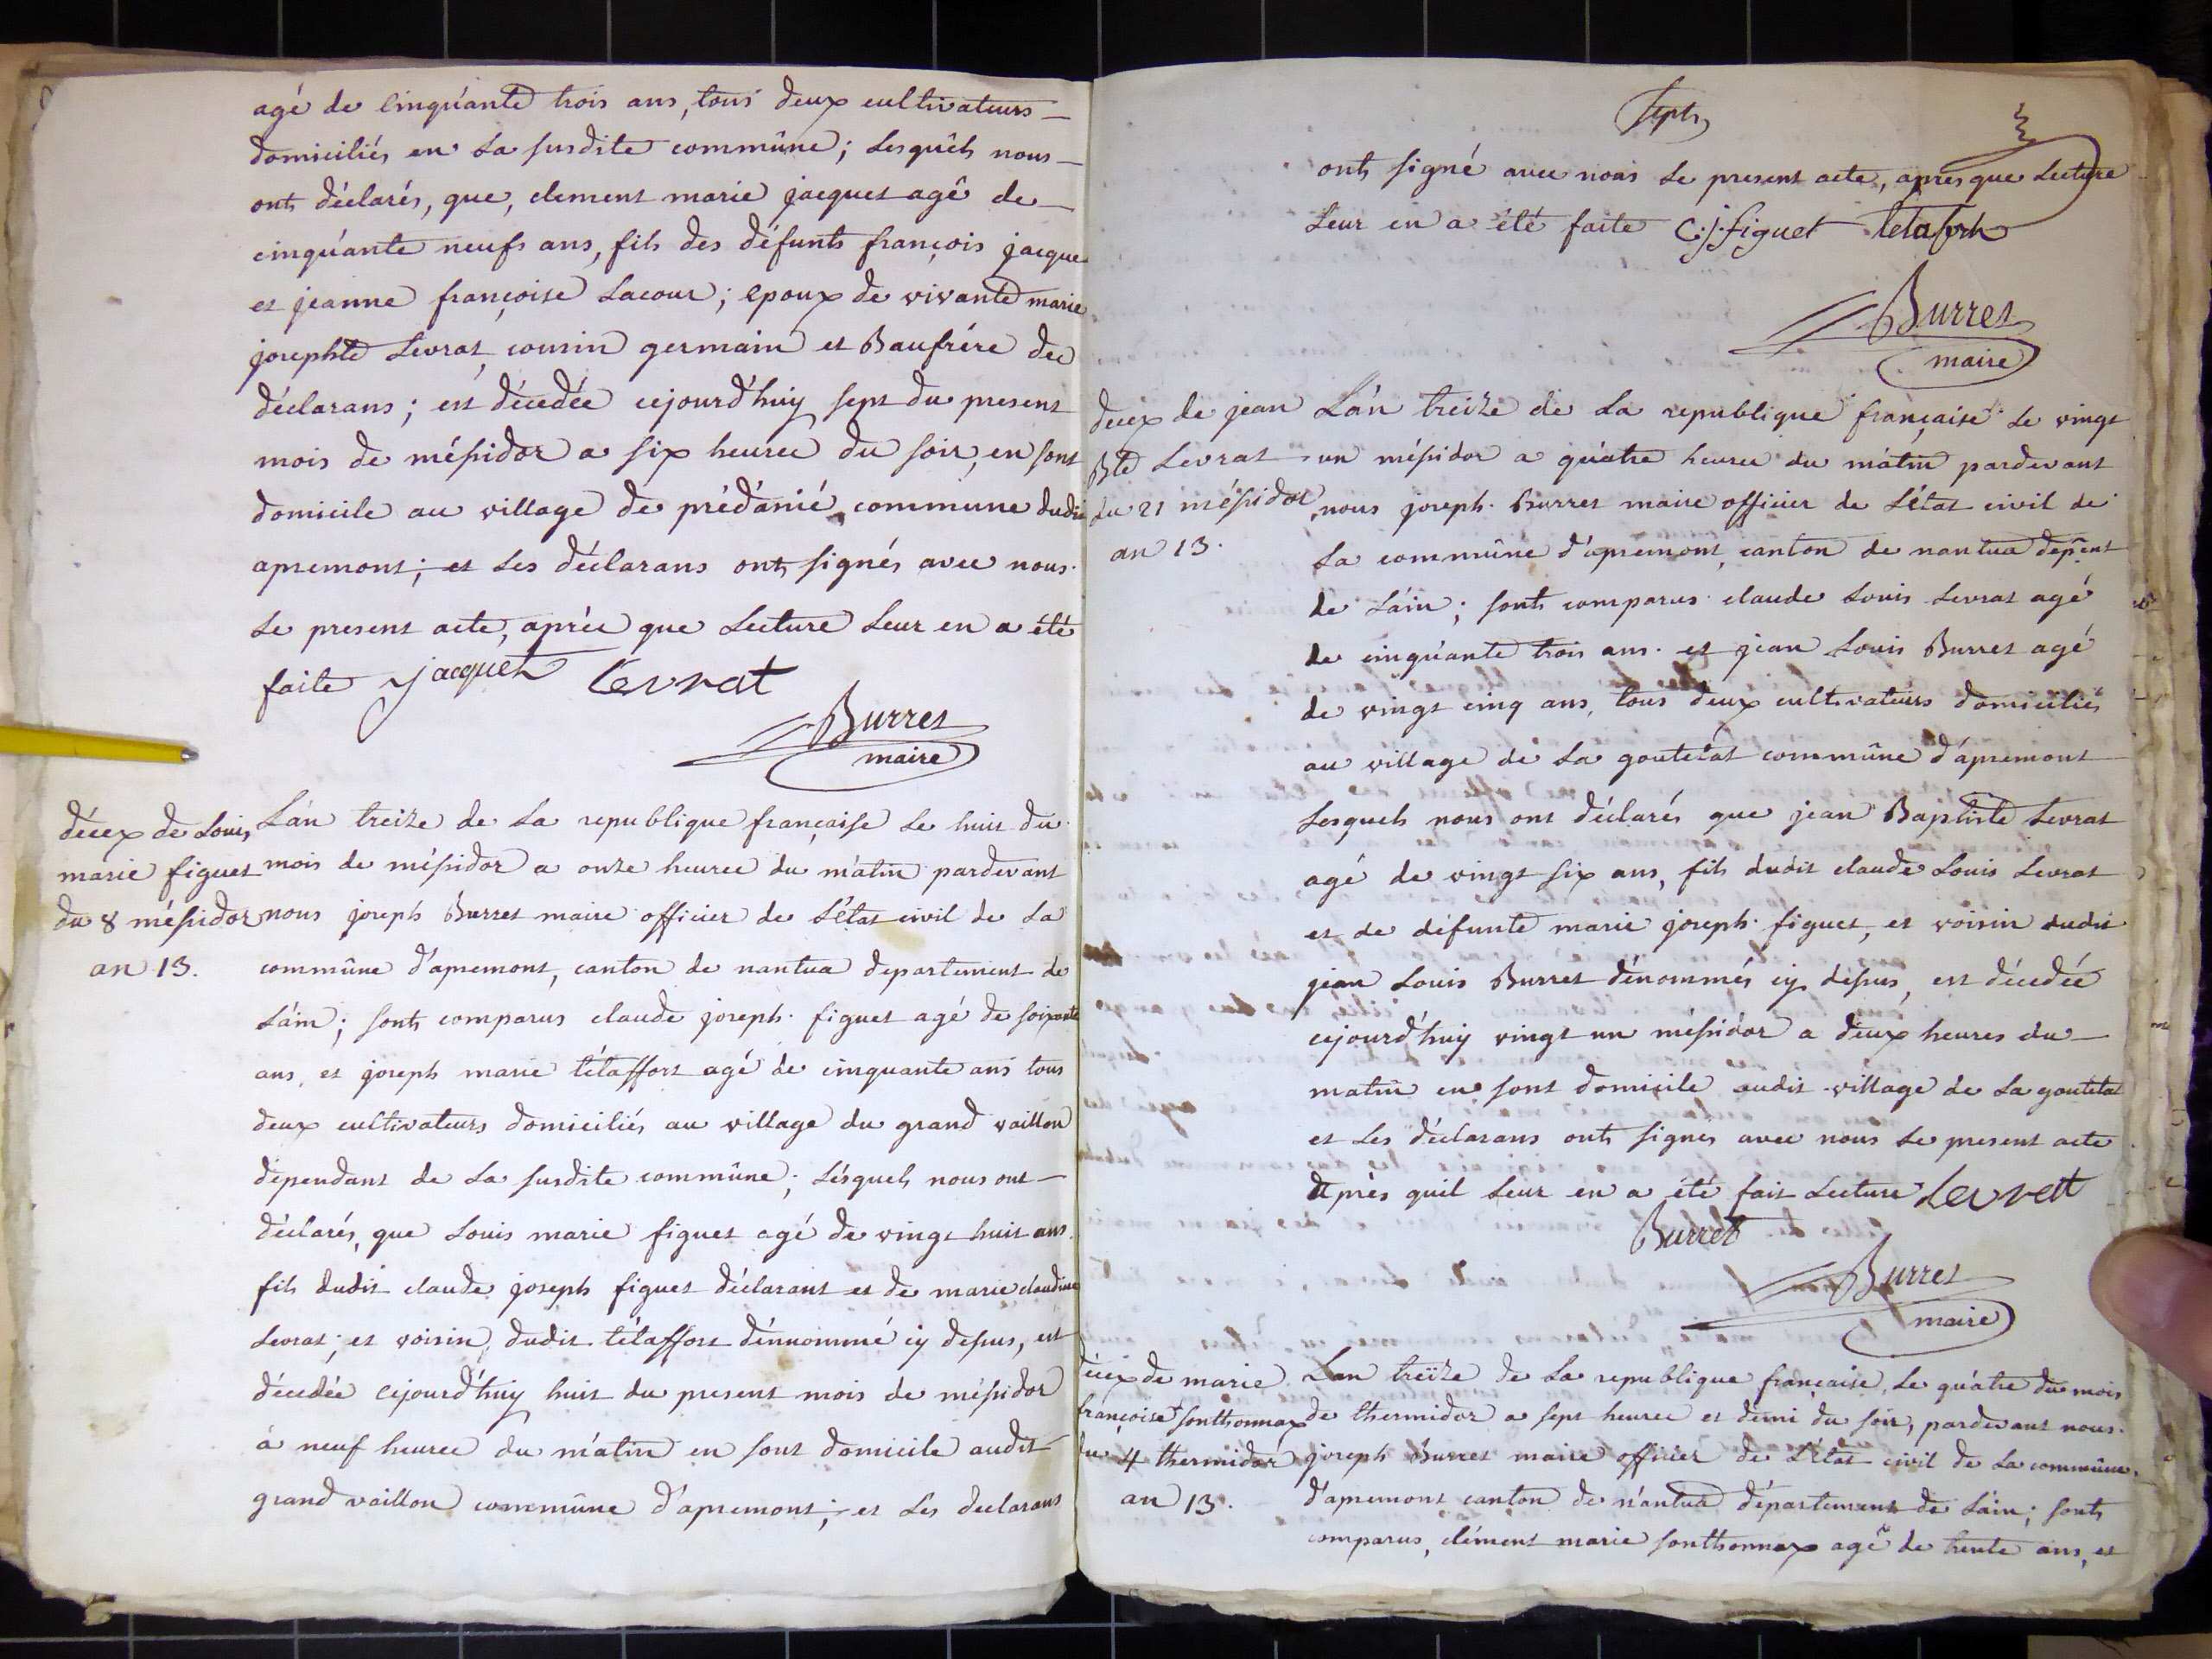 agé de cinquante trois ans, tous deux cultivateurs
domiciliés en la susdite commûne; lesquels nous
onts déclarés, que, clement marie jacquet agê de
cinquante neufs ans, fils des défunts françois jacquet
et jeanne françoise Lacour; epoux de vivante marie
josephte Levrat, cousin germain et Baufrére des
déclarans; est décedée cejourd'huy sept du present
mois de méssidor a six heures du soir, en sont
domicile au village de prédanié commune dudit
apremont; et les déclarans onts signés avec nous
le present acte, aprés que lecture leur en a été
faite jacquet Levrat
Burret
maire
décex de Louis
marie figuet
du 8 méssidor
an 13.
L'an treize de la republique française le huit du
mois de méssidor a onze heures du matin pardevant
nous joseph Burret maire officier de l'état civil de la
commûne d'apremont, canton de nantua departement de
l'ain; sonts comparus claude joseph figuet agé de soixante
ans, et joseph marie tétaffort agé de cinquante ans tous
deux cultivateurs domiciliés au village du grand vaillon
dependant de la susdite commûne; lésquels nous ont
déclarés, que Louis marie figuet agé de vingt huit ans.
fils dudit claude joseph figuet déclarant et de marie claudine
Levrat; et voisin dudit tétaffort dénnommé cy dessus, est
décedée cejourd'huy huit du present mois de méssidor
à neuf heures du matin en sont domicile audit
grand vaillon commûne d'apremont; et les declarans
sept
onts signé avec nous le present acte, apres que lecture
leur en a été faite C:j:figuet tetafort
Burret
maire
décex de jean
Bte Levrat
du 21 méssidor
an 13.
L'an treize de la republique française le vingt
un méssidor a quatre heures du matin pardevant
nous joseph Burret maire officier de l'état civil de
la commûne d'apremont, canton de nantua depent
de l'ain; sonts comparus claude Louis Levrat agé
de cinquante trois ans. et jean Louis Burret agé
de vingt cinq ans, tous deux cultivateurs domiciliés
au village de la goutetat commûne d'apremont
lesquels nous ont déclarés que jean Baptiste Levrat
agé de vingt six ans, fils dudit claude Louis Levrat
et de défunte marie joseph figuet, et voisin dudit
jean Louis Burret dénommés cy dessus, est décedée
cejourd'huy vingt un méssidor a deux heures du
matin en sont domicile audit village de la goutetat
et les déclarans onts signes avec nous le present acte
après quil leur en a été fait lecture Levrat
Burret
Burret
maire
décex de marie
françoise sonthonnax
du 4 thermidor
an 13.
L'an treize de la republique française, le quatre du mois
de thermidor a sept heures et demi du soir, pardevant nous
joseph Burret maire officier de l'état civil de la commûne
d'apremont canton de nantua département de l'ain; sonts
comparus, clément marie sonthonnax agé de trente ans, et